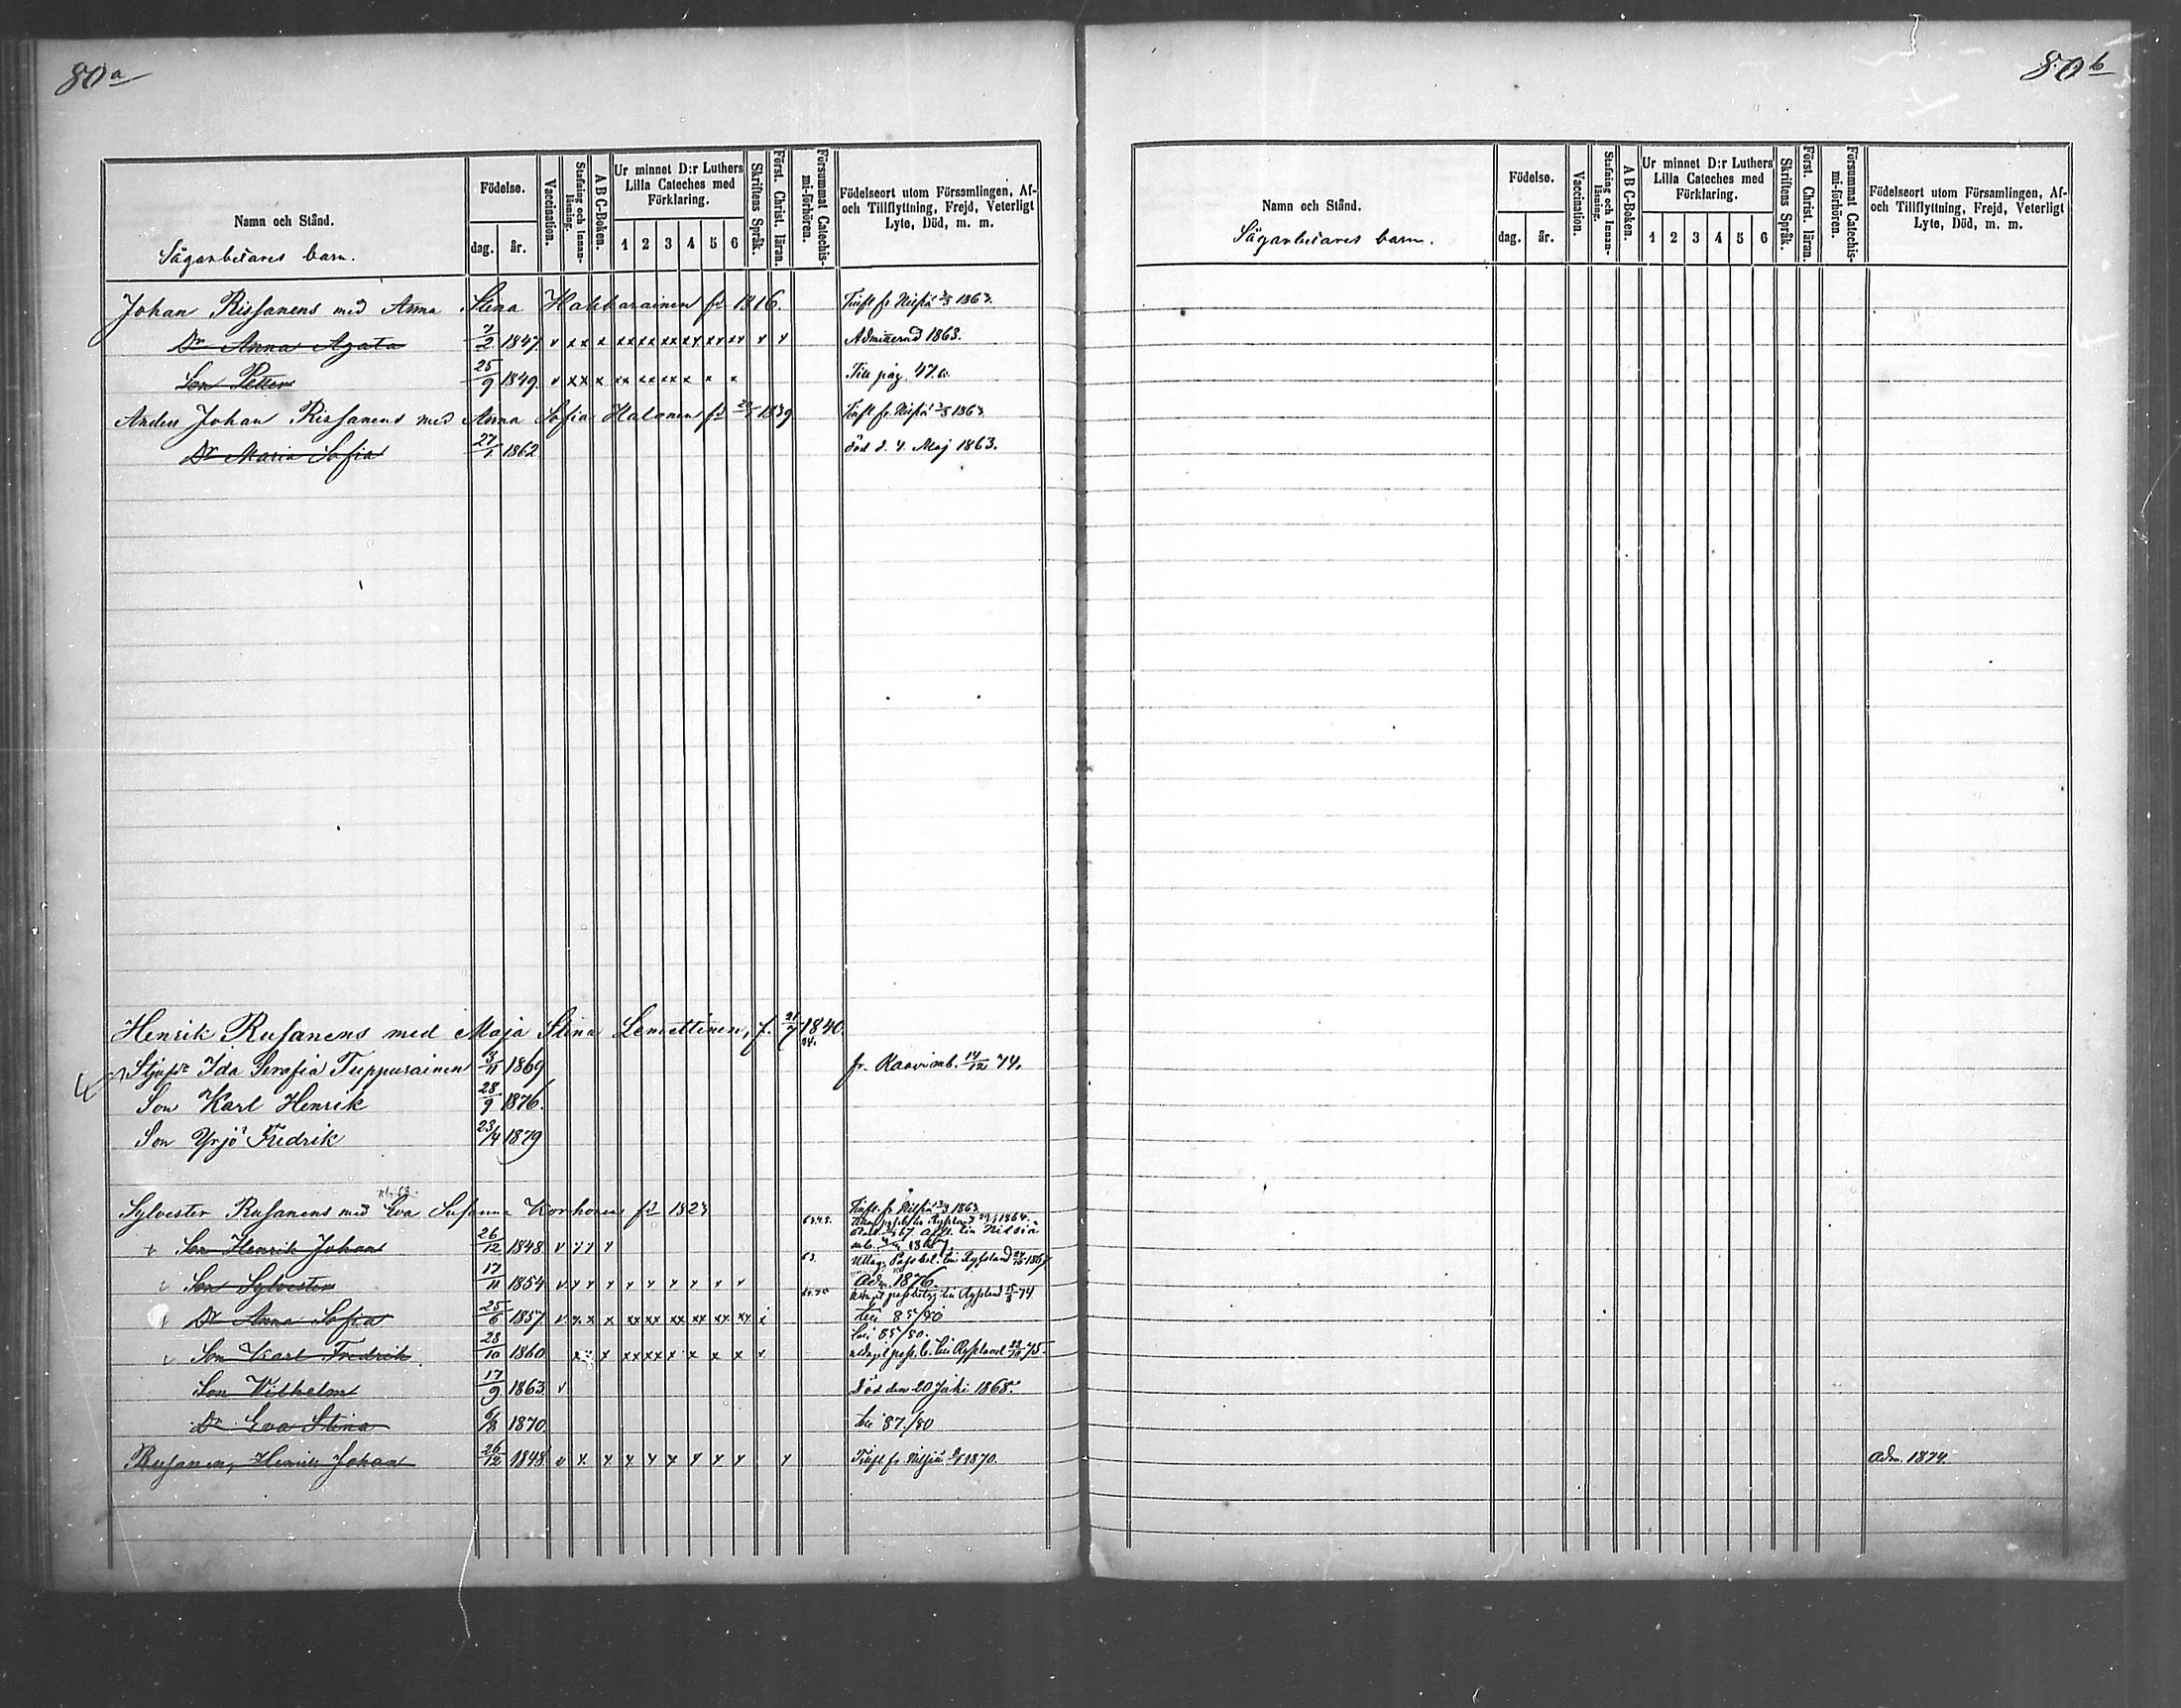 80 a
Namn och Stånd.
Sågarbetares barn.
Födelse.
dag.
år.
Vaccination.
Stafning och Innan-
läsning.
A B C-Boken.
Ur minnet D:r Luthers
Lilla Cateches med
Förklaring.
1 2 3 4 5 6
Skriftens Språk.
Först. Christ. läran.
Försummat Catechis-
mi-förhören.
Födelseort utom Församlingen, Af-
och Tillflyttning, Frejd, Veterligt
Lyte, Död, m. m.
Johan Rissanens med Anna Stina Hakkarainen fd 1816. Infl. fr. Nilsiä 1863.
Dr Anna Agata 2/2 1847. v x x x xx xx xx xx xx xx x x Admitterad 1863.
Son Petter 25/9 1849. v x x x xx xx xx x x x Till pag. 47.
Anders Johan Rissanens med Anna Sofia Halonen fd 1839 Infl. fr. Nilsiä 1863.
Dr Maria Sofia 27/1 1862 död d. 4. Maj 1863.
Henrik Rusanens med Maja Stina Lemettinen, f. 21/7 1840.
Stjufdr Ida Serafia Tuppurainen 3/11 1869 fr. Kaavi mb. 14/12 74.
Son Karl Henrik 28/9 1876.
Son Yrjö Fredrik 23/4 1879
Sylvester Rusanens med Eva Susanna Korhonen fd 1823 Infl. fr. Nilsiä 1863
Son Henrik Johan 26/12 1848. v x x x
Son Sylvester 17/11 1854 v x x x x x x x x x Adm. 1876.
Dr Anna Sofia 25/6 1857. v x x x xx xx xx xx xx xx x till 85/80
Son Karl Fredrik 28/10 1860 x x x xx xx x x x x x till 85/80.
Son Wilhelm 17/9 1863 v Död den 20 Juli 1868.
Dr Eva Stina 6/8 1870. till 87/80
Rusanen, Henrik Johan 26/12 1848. v x x x x x x x x x Infl fr. Nilsiä 1870.
80 b
Namn och Stånd.
Sågarbetares barn.
Födelse.
dag.
år.
Vaccination.
Stafning och Innan-
läsning.
A B C-Boken.
Ur minnet D:r Luthers
Lilla Cateches med
Förklaring.
1 2 3 4 5 6
Skriftens Språk.
Först. Christ. läran.
Försummat Catechis-
mi-förhören.
Födelseort utom Församlingen, Af-
och Tillflyttning, Frejd, Veterligt
Lyte, Död, m. m.
Adm. 1874.